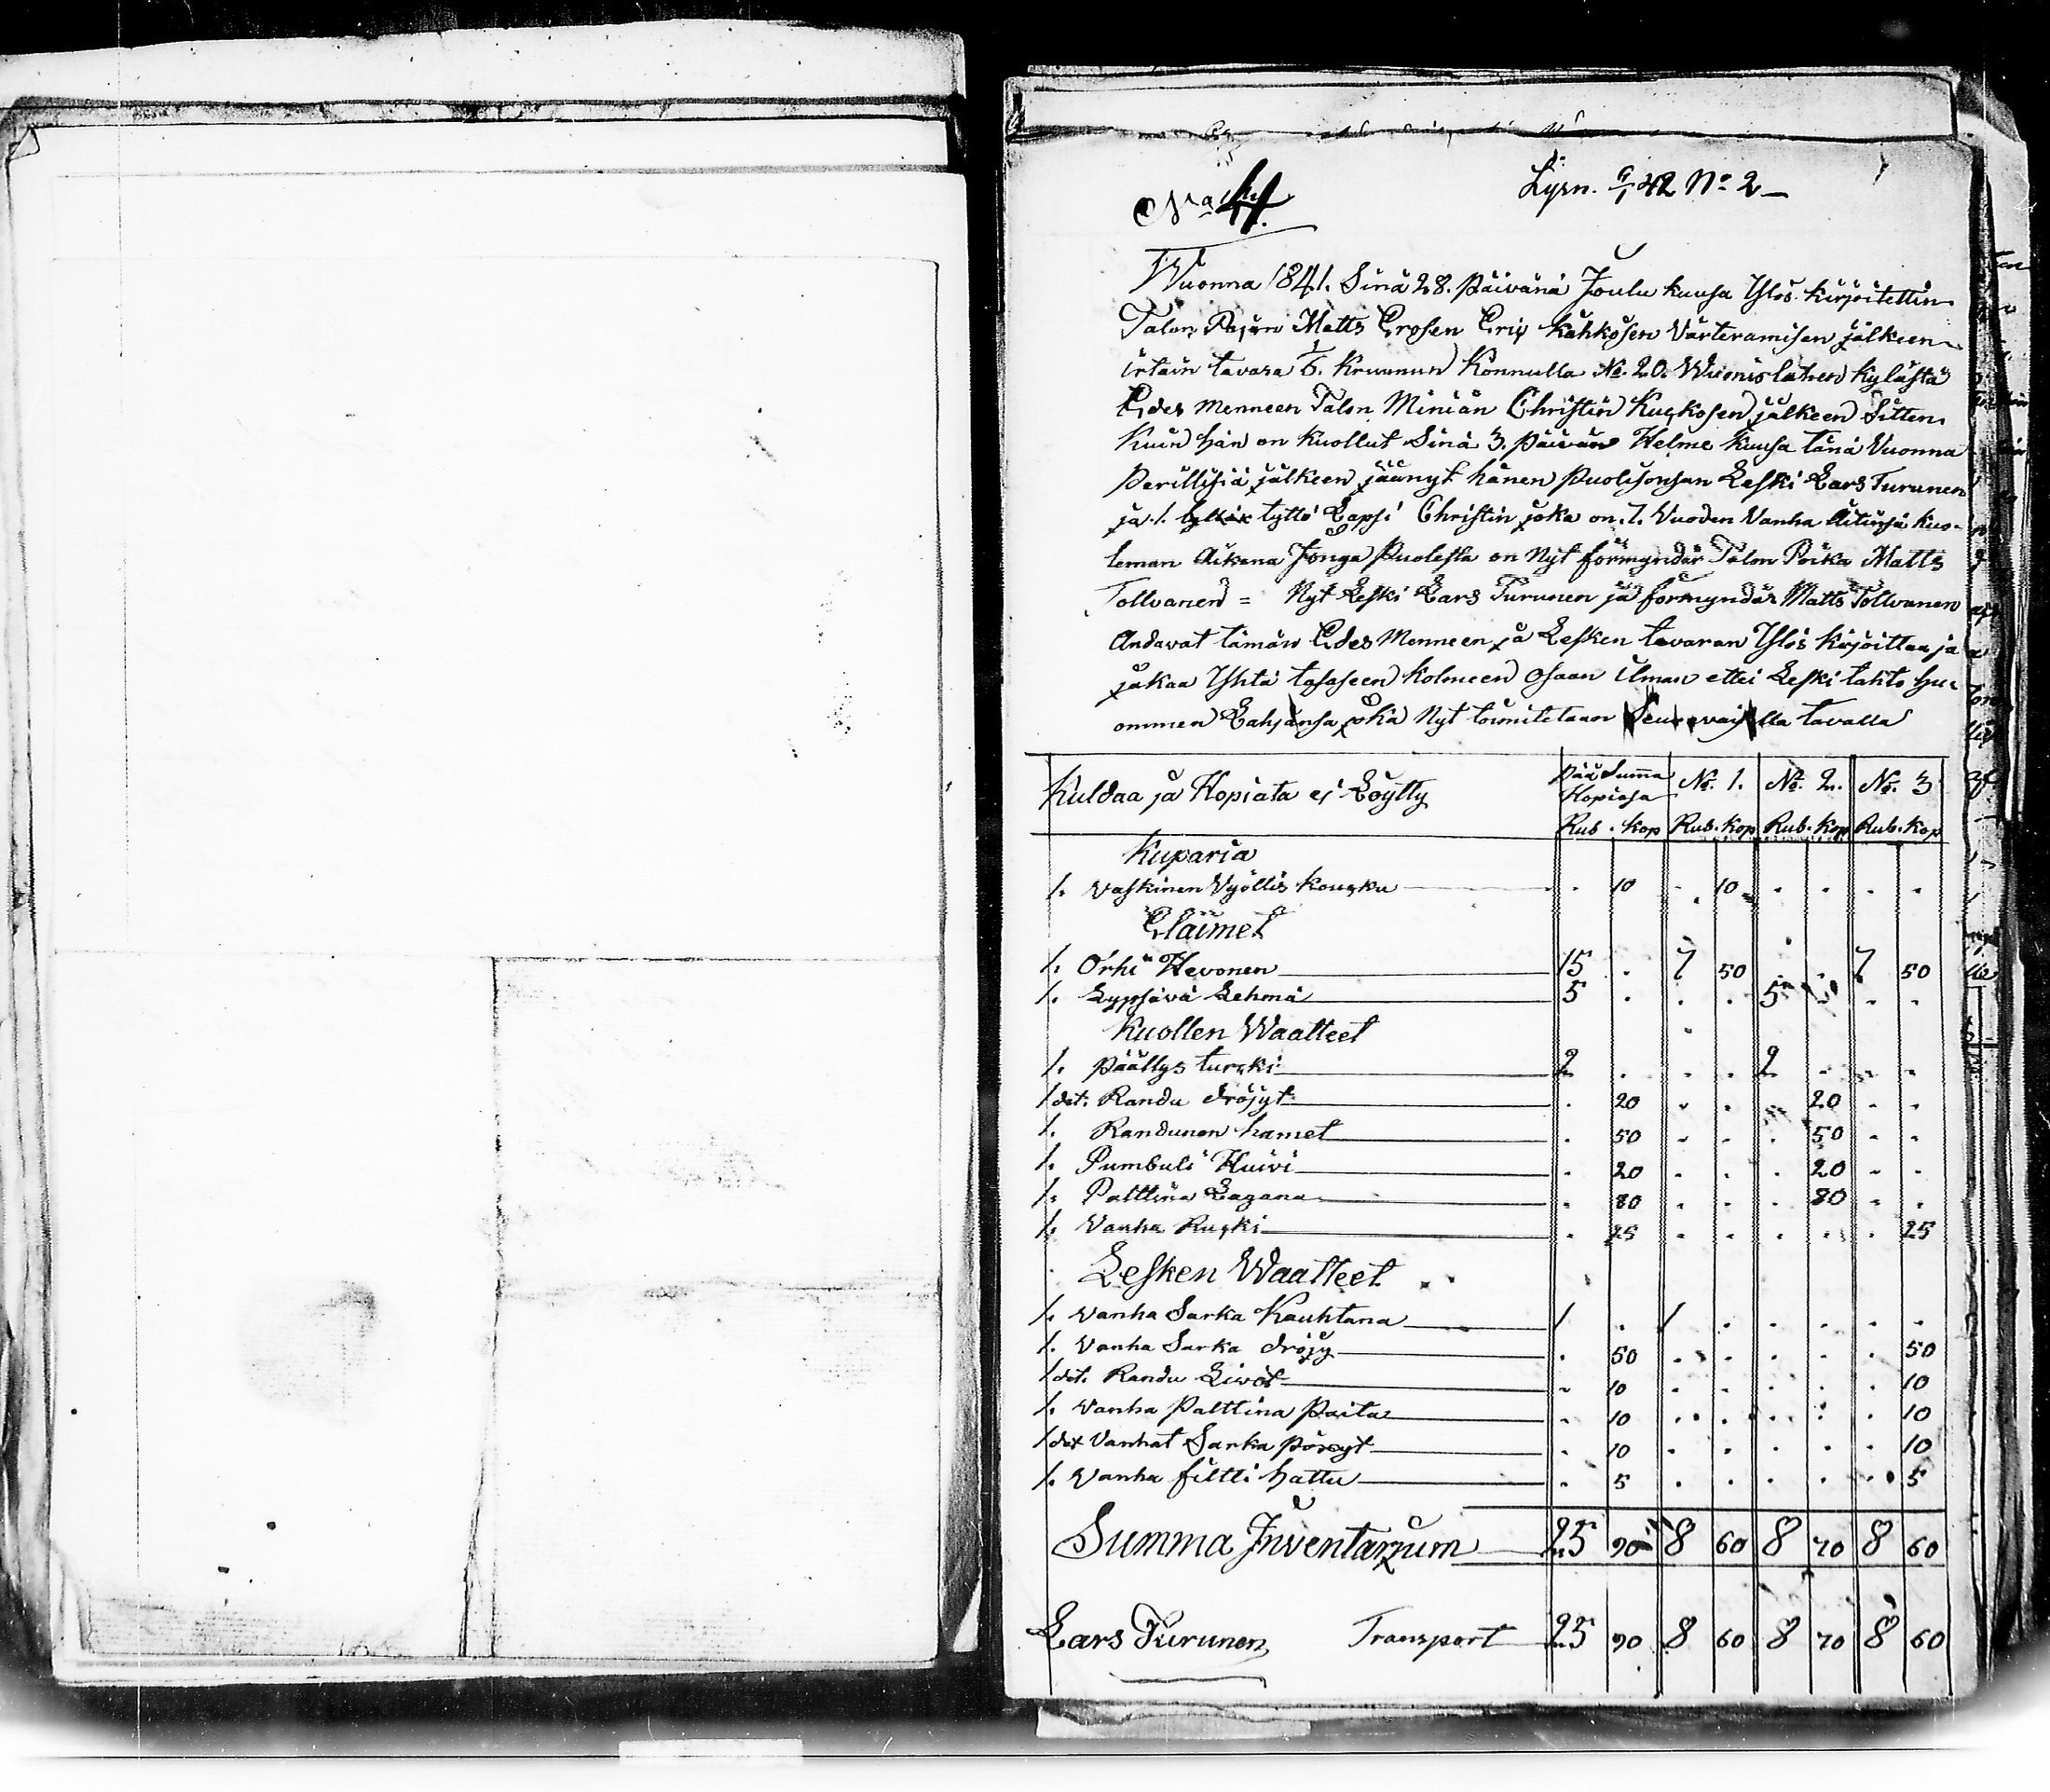 Lyrn. 9/1 42 No 2
No 41.
Wuonna 1841. Sinä 28. päivänä Joulu kuusa Ylös kirjoitettin
Talon Pojan Matts Erosen Eric Kähkösen Värteramisen jälkeen
irtain tavara 1/6. Kruunun Konnulla No. 20. Wuonislahen Kylästä
Edes menneen Talon Miniän Christin Kuckosen jälkeen Sitten
Kuin hän on Kuollut Sinä 3. päivän Helme Kuusa tänä Vuonna
Perillisiä jälkeen jäänyt hänen puolisonsan Leski Lars Turunen
ja .1. tyttö Lapsi Christin joka on .7. Vuoden Vanha äitinsä kuo-
leman Aikana Jonga Puolesta on Nyt förmyndär Talon Poika Matts
Tollvanen = Nyt Leski Lars Turunen ja förmyndär Matts Tollvanen
Andavat tämän Edes Menneen ja Lesken tavaran Ylös kirjoittaa ja
jakaa Yhtä tasaseen kolmeen osaan ilman ettei Leski tahto hu-
ommen Lahjansa joka Nyt toimitetaan Seuravaisella tavalla
Kuldaa ja Hopiata ej Löytty Pää Summa Hopiasa No. 1. No. 2. No. 3
Rub. kop Rub. kop Rub. kop Rub. kop
Kuparia
1. Vaskinen Vyöllis koucku . 10 - 10 . . . .
Eläimet
1. Orhi Hevonen 15 . 7 50 . . 7 50
1. Lypsävä Lehmä 5 . . . 5 . . .
Kuollen Waatteet
1. Päällys turcki 2 . . . 2 . . .
1 det. Randu dröjyt . 20 . . . 20 . .
1. Randunen hamet . 50 . . . 50 . .
1. Pumbuli Huivi . 20 . . . 20 . .
1. Palttina Lagana . 80 . . . 80 . .
1. Vanha Rucki . 25 . . . . . 25
Lesken Waatteet
1. Vanha Sarka Kauhtana 1 . 1 . . . . .
1. Vanha Sarka dröjy . 50 . . . . . 50
1 det. Randu Livot . 10 . . . . . 10
1. Vanha Palttina Paita . 10 . . . . . 10
1 det Vanhat Sarka pöxyt . 10 . . . . . 10
1. Vanha filtti hattu . 5 . . . . . 5
Summa Inventarium 25 90 8 60 8 70 8 60
Lars Turunen Transport 25 90 8 60 8 70 8 60